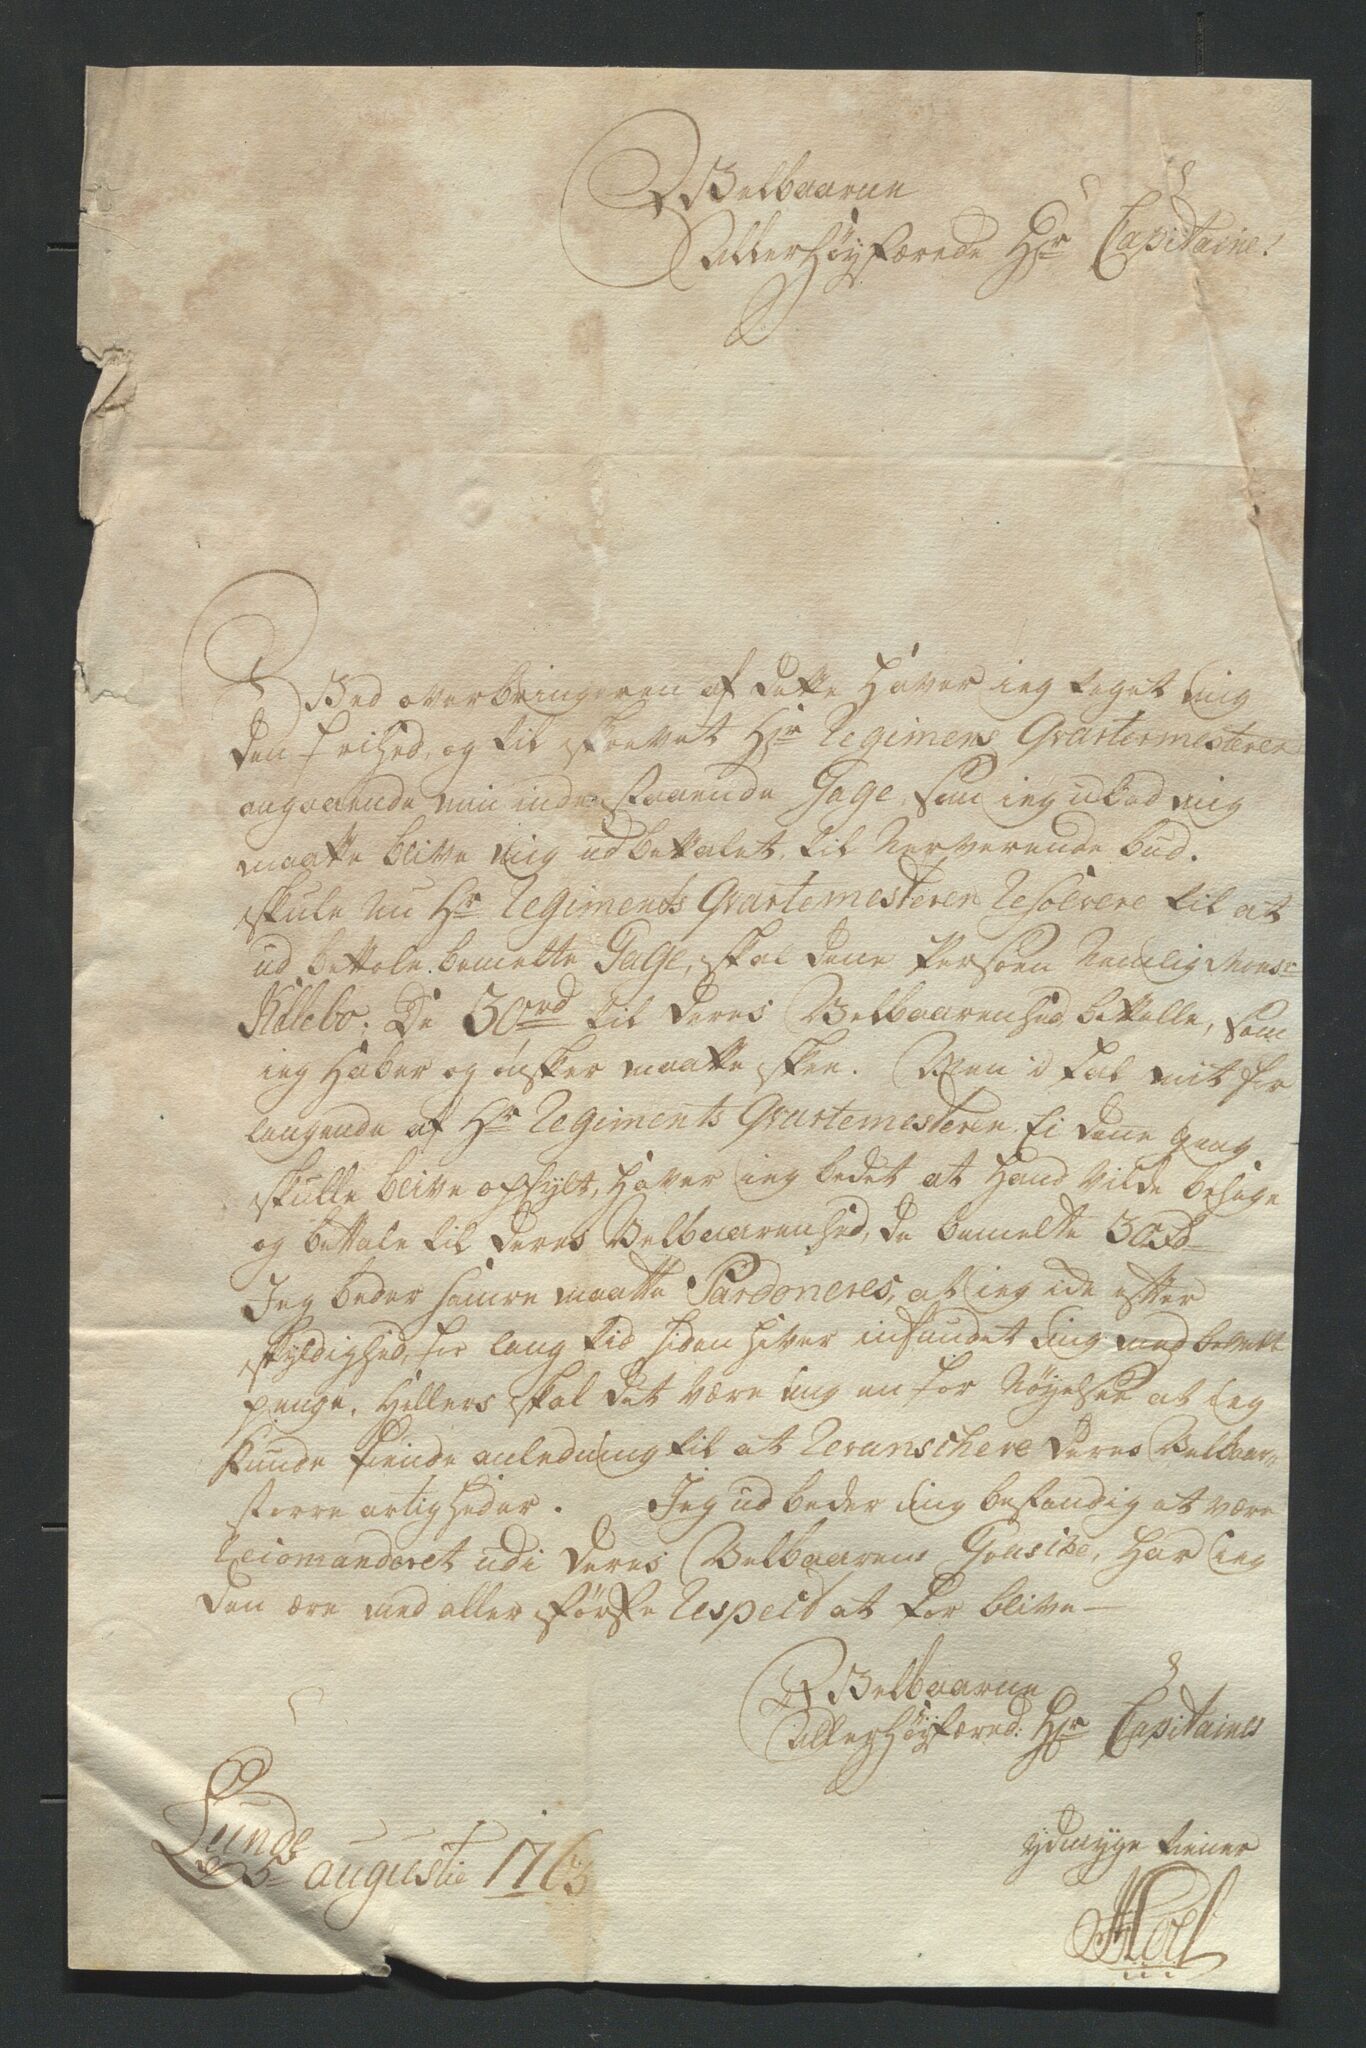 Velbaarne
Allerhøystærede Hr Capitaine!
Ved overbringeren af dette haver ieg taget mig
den frihed, og til skrevet Hr Regimens Qvartermesteren
angaaende min inde staaende Gage, som ieg udbad mig
maatte blive mig udbettalet, til nerverende bud.
skule nu Hr Regiments Qvartemesteren Resolvere til at
ud bettale bemelte Gage, skal dene Persoen nemlig Monsr
Killebo, de 30rd til deres Velbaarenhed bettalle, som
ieg haber og ønsker maatte skee. Men i fal mit for
langende af Hr Regiments Qvartemesteren Ei dene gang
skulle blive opfylt, haver ieg bedet at hand vilde besøge
og bettale til deres Velbaarenhed, de bemelte 30rd
Jeg beder hamre maatte Pardoneres, at ieg icke efter
skyldighed, for lang tid siden haver indfundet mig med bemelt
penge, hellers skal det være mig en for nøyelse at ieg
kunde finde anledning til at Revanschere deres Velbaar-
større artigheder. Jeg ud beder mig bestandig at være
Recomanderet udi deres Velbaarens Gunst, har ieg
den ære med aller største Respect at for blive
Velbaarne
Allerhøystæred: Hr Capitaines
ydmyge tiener
Lunde
d 5te augustii 1763